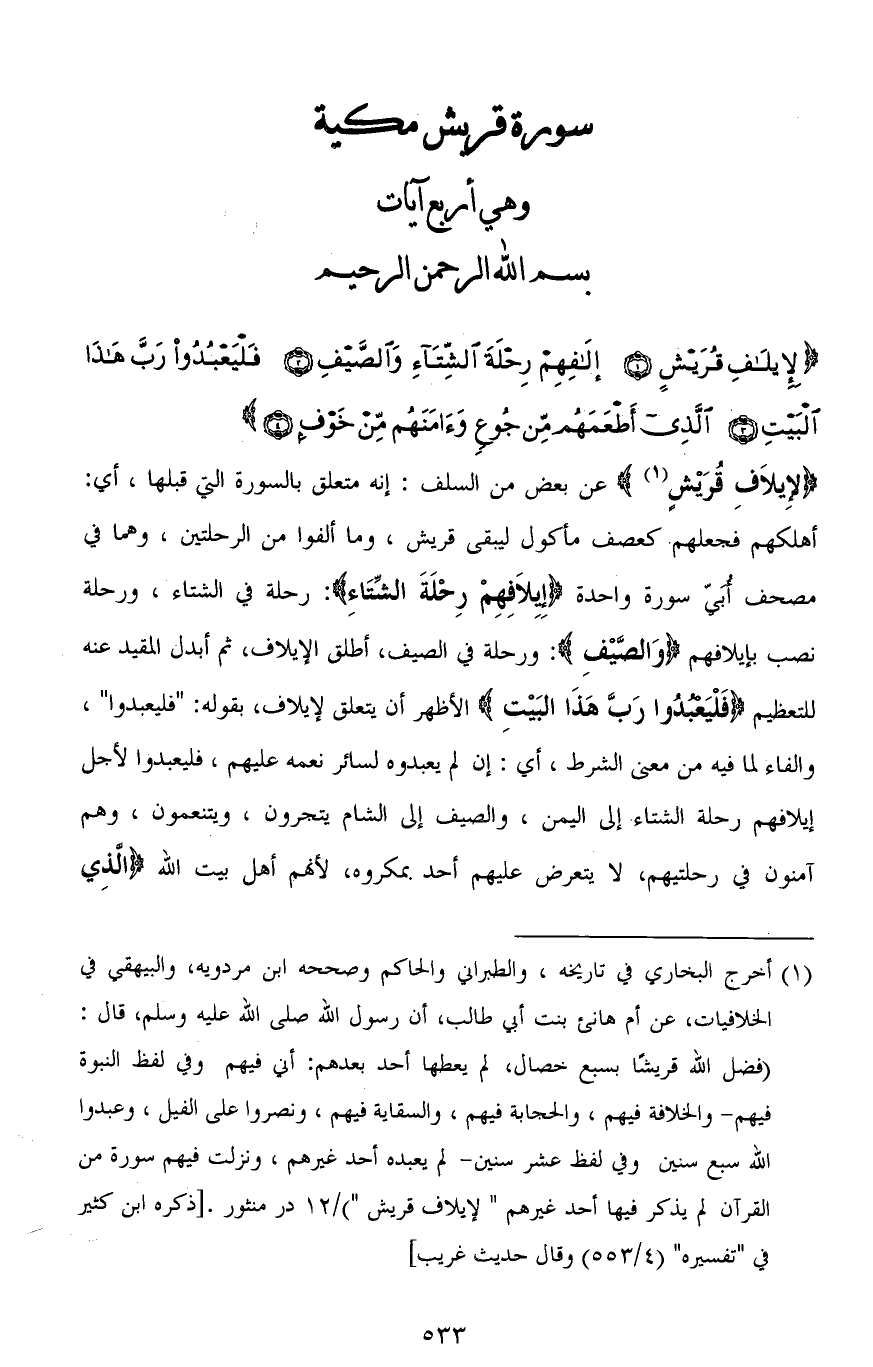 سورة قريش مكية
وهي أربع آيات
بسم الله الرحمن الرحيم
﴿لِإِيلَـٰفِ قُرَيْشٍ ١ إِۦلَـٰفِهِمْ رِحْلَةَ ٱلشِّتَآءِ وَٱلصَّيْفِ ٢ فَلْيَعْبُدُوا۟ رَبَّ هَـٰذَا
ٱلْبَيْتِ ٣ ٱلَّذِىٓ أَطْعَمَهُم مِّن جُوعٍ وَءَامَنَهُم مِّنْ خَوْفٍۭ ٤﴾
﴿لِإِيلاَفِ قُرَيْشٍ(١) ﴾ عن بعض من السلف : إنه متعلق بالسورة التي قبلها ، أي:
أهلكهم فجعلهم كعصف مأكول ليبقى قريش ، وما ألفوا من الرحلتين ، وهما في
مصحف أُبَيّ سورة واحدة ﴿إِيلاَفِهِمْ رِحْلَةَ الشِّتَاءِ﴾: رحلة في الشتاء ، ورحلة
نصب بإيلافهم ﴿وَالصَّيْفِ ﴾: ورحلة في الصيف، أطلق الإيلاف، ثم أبدل المقيد عنه
للتعظيم ﴿فَلْيَعْبُدُوا رَبَّ هَذَا البَيْتِ ﴾ الأظهر أن يتعلق لإيلاف، بقوله: "فليعبدوا" ،
والفاء لما فيه من معنى الشرط ، أي : إن لم يعبدوه لسائر نعمه عليهم ، فليعبدوا لأجل
إيلافهم رحلة الشتاء إلى اليمن ، والصيف إلى الشام يتجرون ، ويتنعمون ، وهم
آمنون في رحلتيهم، لا يتعرض عليهم أحد بمكروه، لأنهم أهل بيت الله ﴿الَّذِي
(١) أخرج البخاري في تاريخه ، والطبراني والحاكم وصححه ابن مردويه، والبيهقي في
الخلافيات، عن أم هانئ بنت أبي طالب، أن رسول الله صلى الله عليه وسلم، قال :
(فضل الله قريشًا بسبع خصال، لم يعطها أحد بعدهم: أني فيهم وفي لفظ النبوة
فيهم– والخلافة فيهم ، والحجابة فيهم ، والسقاية فيهم ، ونصروا على الفيل ، وعبدوا
الله سبع سنين وفي لفظ عشر سنين– لم يعبده أحد غيرهم ، ونزلت فيهم سورة من
القرآن لم يذكر فيها أحد غيرهم " لإيلاف قريش ")/١٢ در منثور .[ذكره ابن كثير
في "تفسيره" (٥٥٣/٤) وقال حديث غريب]
٥٣٣